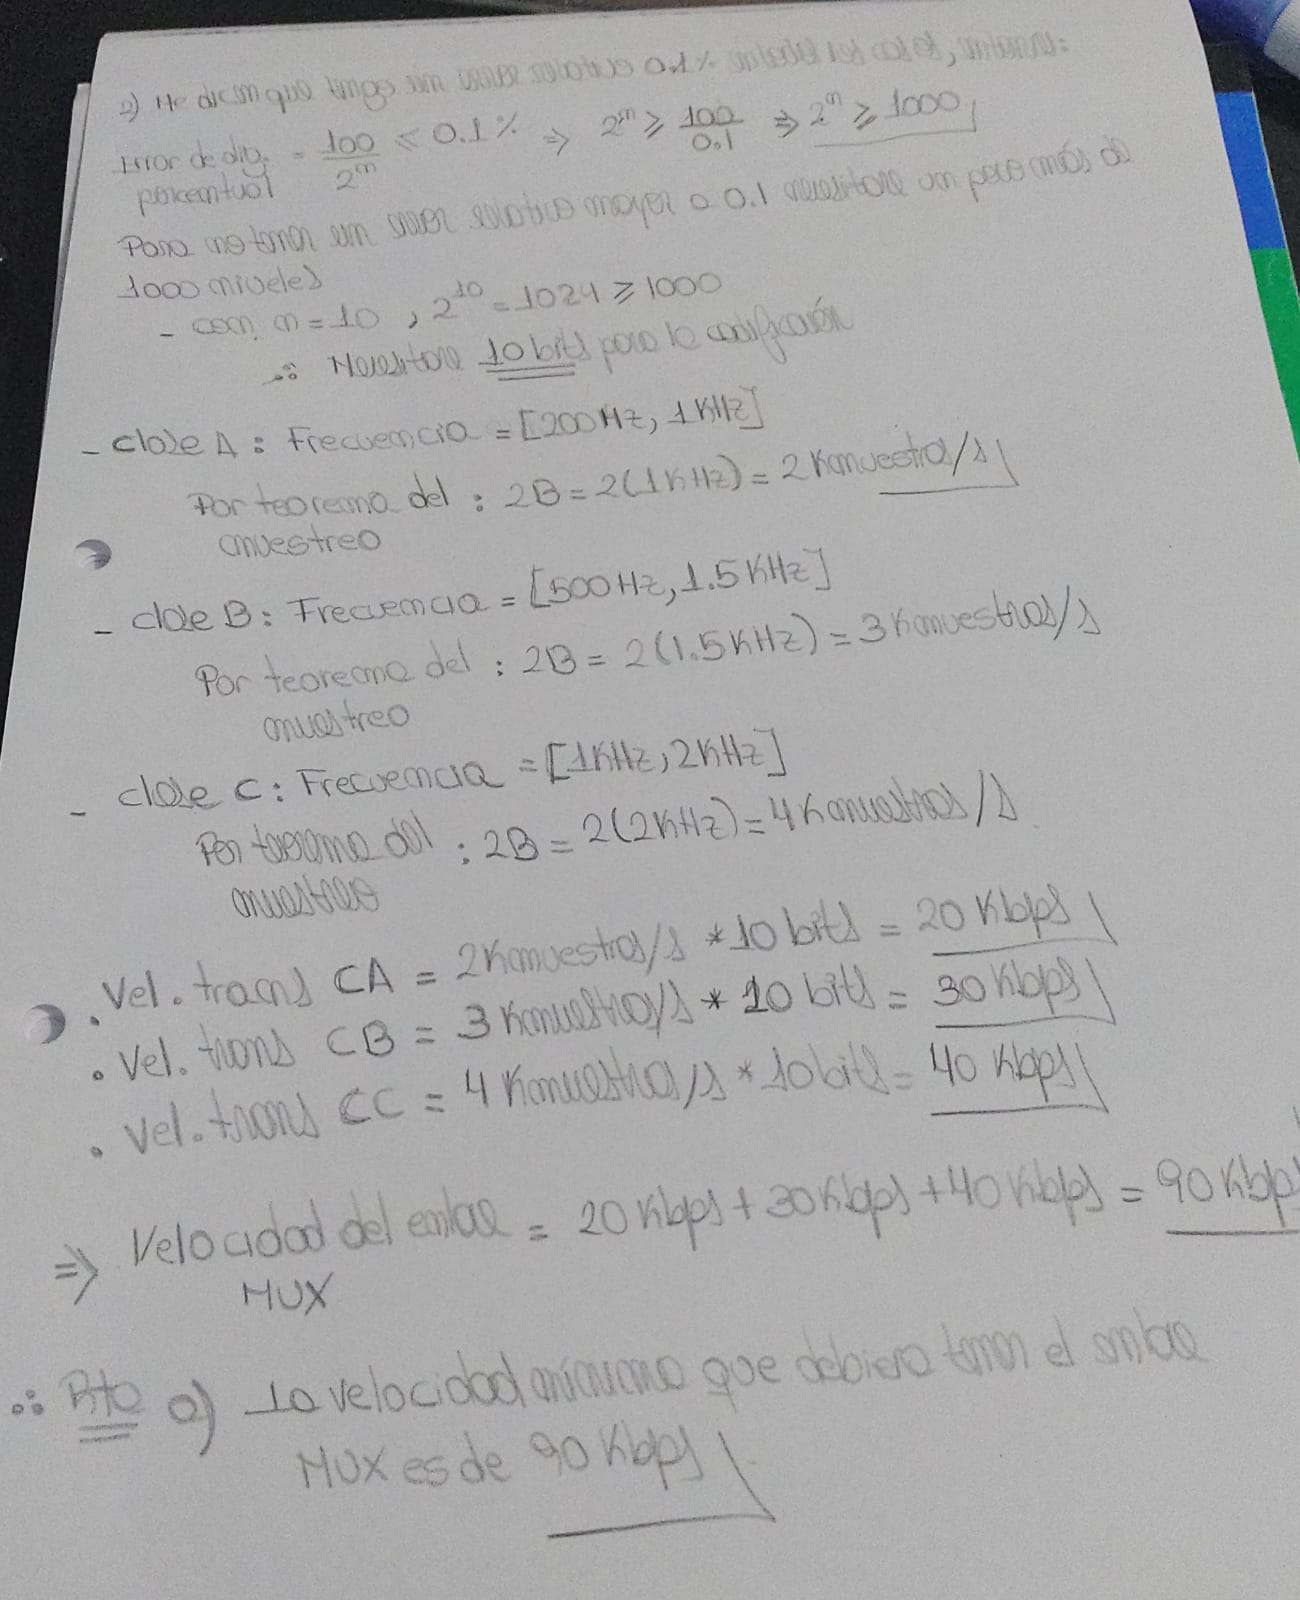 2) Me dicen que tengo un error relativo 0.1% en todos los casos, entonces:
Error de dig. porcentual = 100/2^n < 0.1% ⇒ 2^n ≥ 100/0.1 ⇒ 2^n ≥ 1000
Para no tener un error relativo mayor a 0.1 necesitare un poco más de
1000 niveles
- con n = 10, 2^10 = 1024 ≥ 1000
∴ Necesitare 10 bits para la codificación
- clase A: Frecuencia = [200Hz, 1KHz]
Por teorema del muestreo : 2B = 2(1KHz) = 2 Kmuestras/s
- clase B: Frecuencia = [500Hz, 1.5KHz]
Por teorema del muestreo : 2B = 2(1.5KHz) = 3 Kmuestras/s
- clase C: Frecuencia = [1KHz, 2KHz]
Por teorema del muestreo : 2B = 2(2KHz) = 4 Kmuestras/s
• Vel. trans CA = 2 Kmuestras/s * 10 bits = 20 Kbps
• Vel. trans CB = 3 Kmuestras/s * 10 bits = 30 Kbps
• Vel. trans CC = 4 Kmuestras/s * 10 bits = 40 Kbps
⇒ Velocidad del enlace = 20 Kbps + 30 Kbps + 40 Kbps = 90 Kbps
MUX
∴ Rta a) La velocidad mínima que debiera tener el enlace
MUX es de 90 Kbps